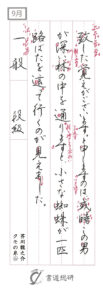 9月
致した覚えがございます。と申しますのは或時この男
が深い林の中を通りますと、小さな蜘蛛が一匹
路ばたを這って行くのが見えました。
一般 段 級
芥川龍之介
クモの糸
書道総研